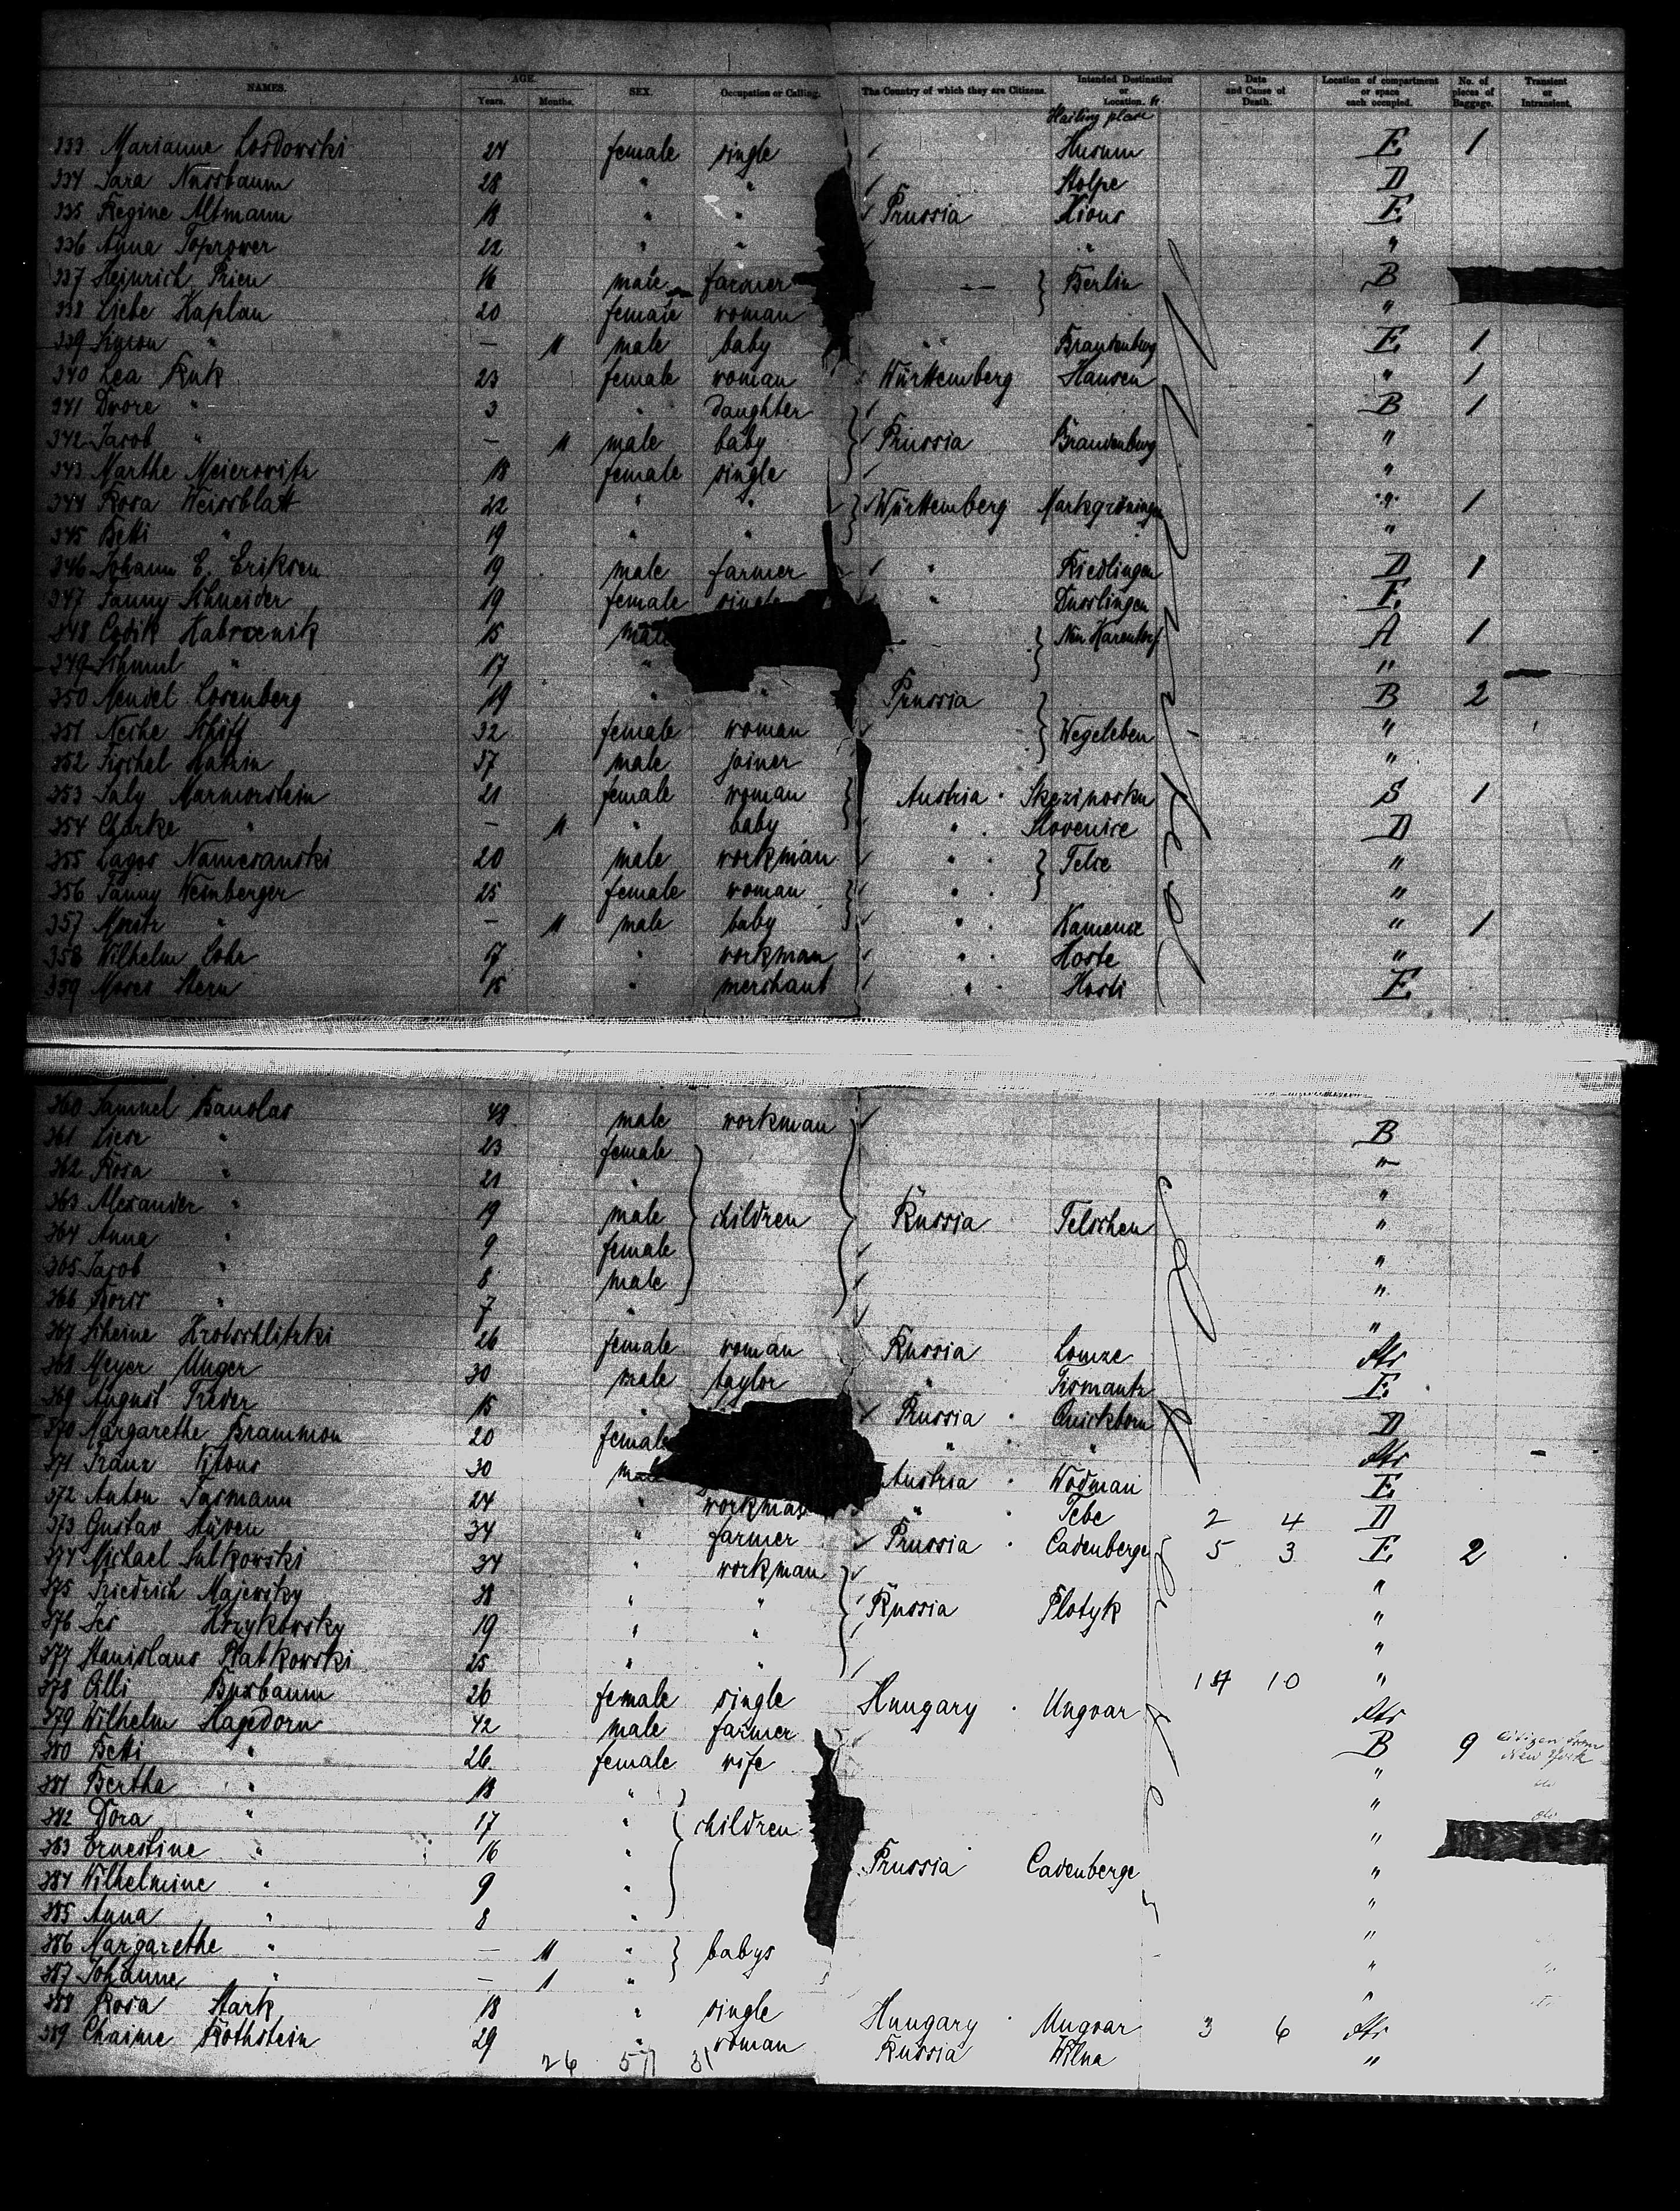 NAMES. AGE. Years. Months. SEX. Occupation or Calling. The Country of which they are Citizens. Intended Destination or Location. Date and Cause of Death. Location of compartment or space each occupied. No. of pieces of Baggage. Transient or Intransient.
Hailing place
333 Marianne Losdowski 24 female single Husum E 1
334 Sara Nussbaum 28 " " Stolpe D
335 Regine Altmann 18 " " Prussia Xions E
336 Anna Toprower 22 " " " "
337 Heinrich Prien 16 male farmer Berlin B
338 Liebe Kaplan 20 female woman "
339 Simon " — 11 male baby " " Brandenburg E 1
340 Lea Ruk 23 female woman Württemberg Hausen " 1
341 Dwore " 3 " daughter B 1
342 Jacob " — 11 male baby Prussia Brandenburg "
343 Marthe Meierowitz 18 female single "
344 Rosa Weissblatt 22 " " Württemberg Markgröningen " 1
345 Betti " 19 " " "
346 Johann E. Eriksen 19 male farmer " Riedlingen D 1
347 Fanny Schneider 19 female single " Dusslingen E
348 15 male A 1
349 Schmul " 17 "
350 Mendel Losenberg 19 " " Prussia B 2
351 Neche Schiff 32 female woman Wegeleben "
352 Fischel 37 male joiner "
353 Saly Marmorstein 21 female woman Austria S 1
354 " — 11 " baby " D
355 20 male workman " Telse "
356 Fanny 25 female woman " "
357 Moritz " — 11 male baby " Kamenz " 1
358 Wilhelm Lohr 17 " workman " Hoste "
359 Moses Stern 15 " merchant " E
360 Samuel 48 male workman B
361 Liese " 23 female "
362 Rosa " 21 " "
363 Alexander " 19 male children Russia Telschen "
364 Anna " 9 female "
365 Jacob " 8 male "
366 " 7 " "
367 Scheine 26 female woman Russia Lomze
368 Meyer Unger 30 male taylor " E
369 August 15 " Prussia Quickborn D
370 Margarethe Brammon 20 female " "
371 Franz 30 male Austria Wodman E
372 Anton Tasmann 24 " workman " Tebe 2 4 D
373 Gustav Stüven 34 " farmer Prussia Cadenberge 5 3 E 2
374 Michael Sulkowski 34 " workman "
375 Friedrich Majewsky 38 " " Russia Plotyk "
376 Krzykowsky 19 " " "
377 Stanislaus Platkowski 25 " " "
378 Cilli Buxbaum 26 female single Hungary Ungvar 10
379 Wilhelm Hagedorn 42 male farmer B 9 citizen from New York
380 Betti " 26 female wife "
381 Bertha " 18 " "
382 Dora " 17 " children "
383 Ernestine " 16 " Prussia Cadenberge "
384 Wilhelmine " 9 " "
385 Anna " 8 " "
386 Margarethe " — 11 " babys "
387 Johanne " — 1 " "
388 Rosa Stark 18 " single Hungary Ungvar 3 6
389 Chaime Rothstein 29 " woman Russia Wilna "
26